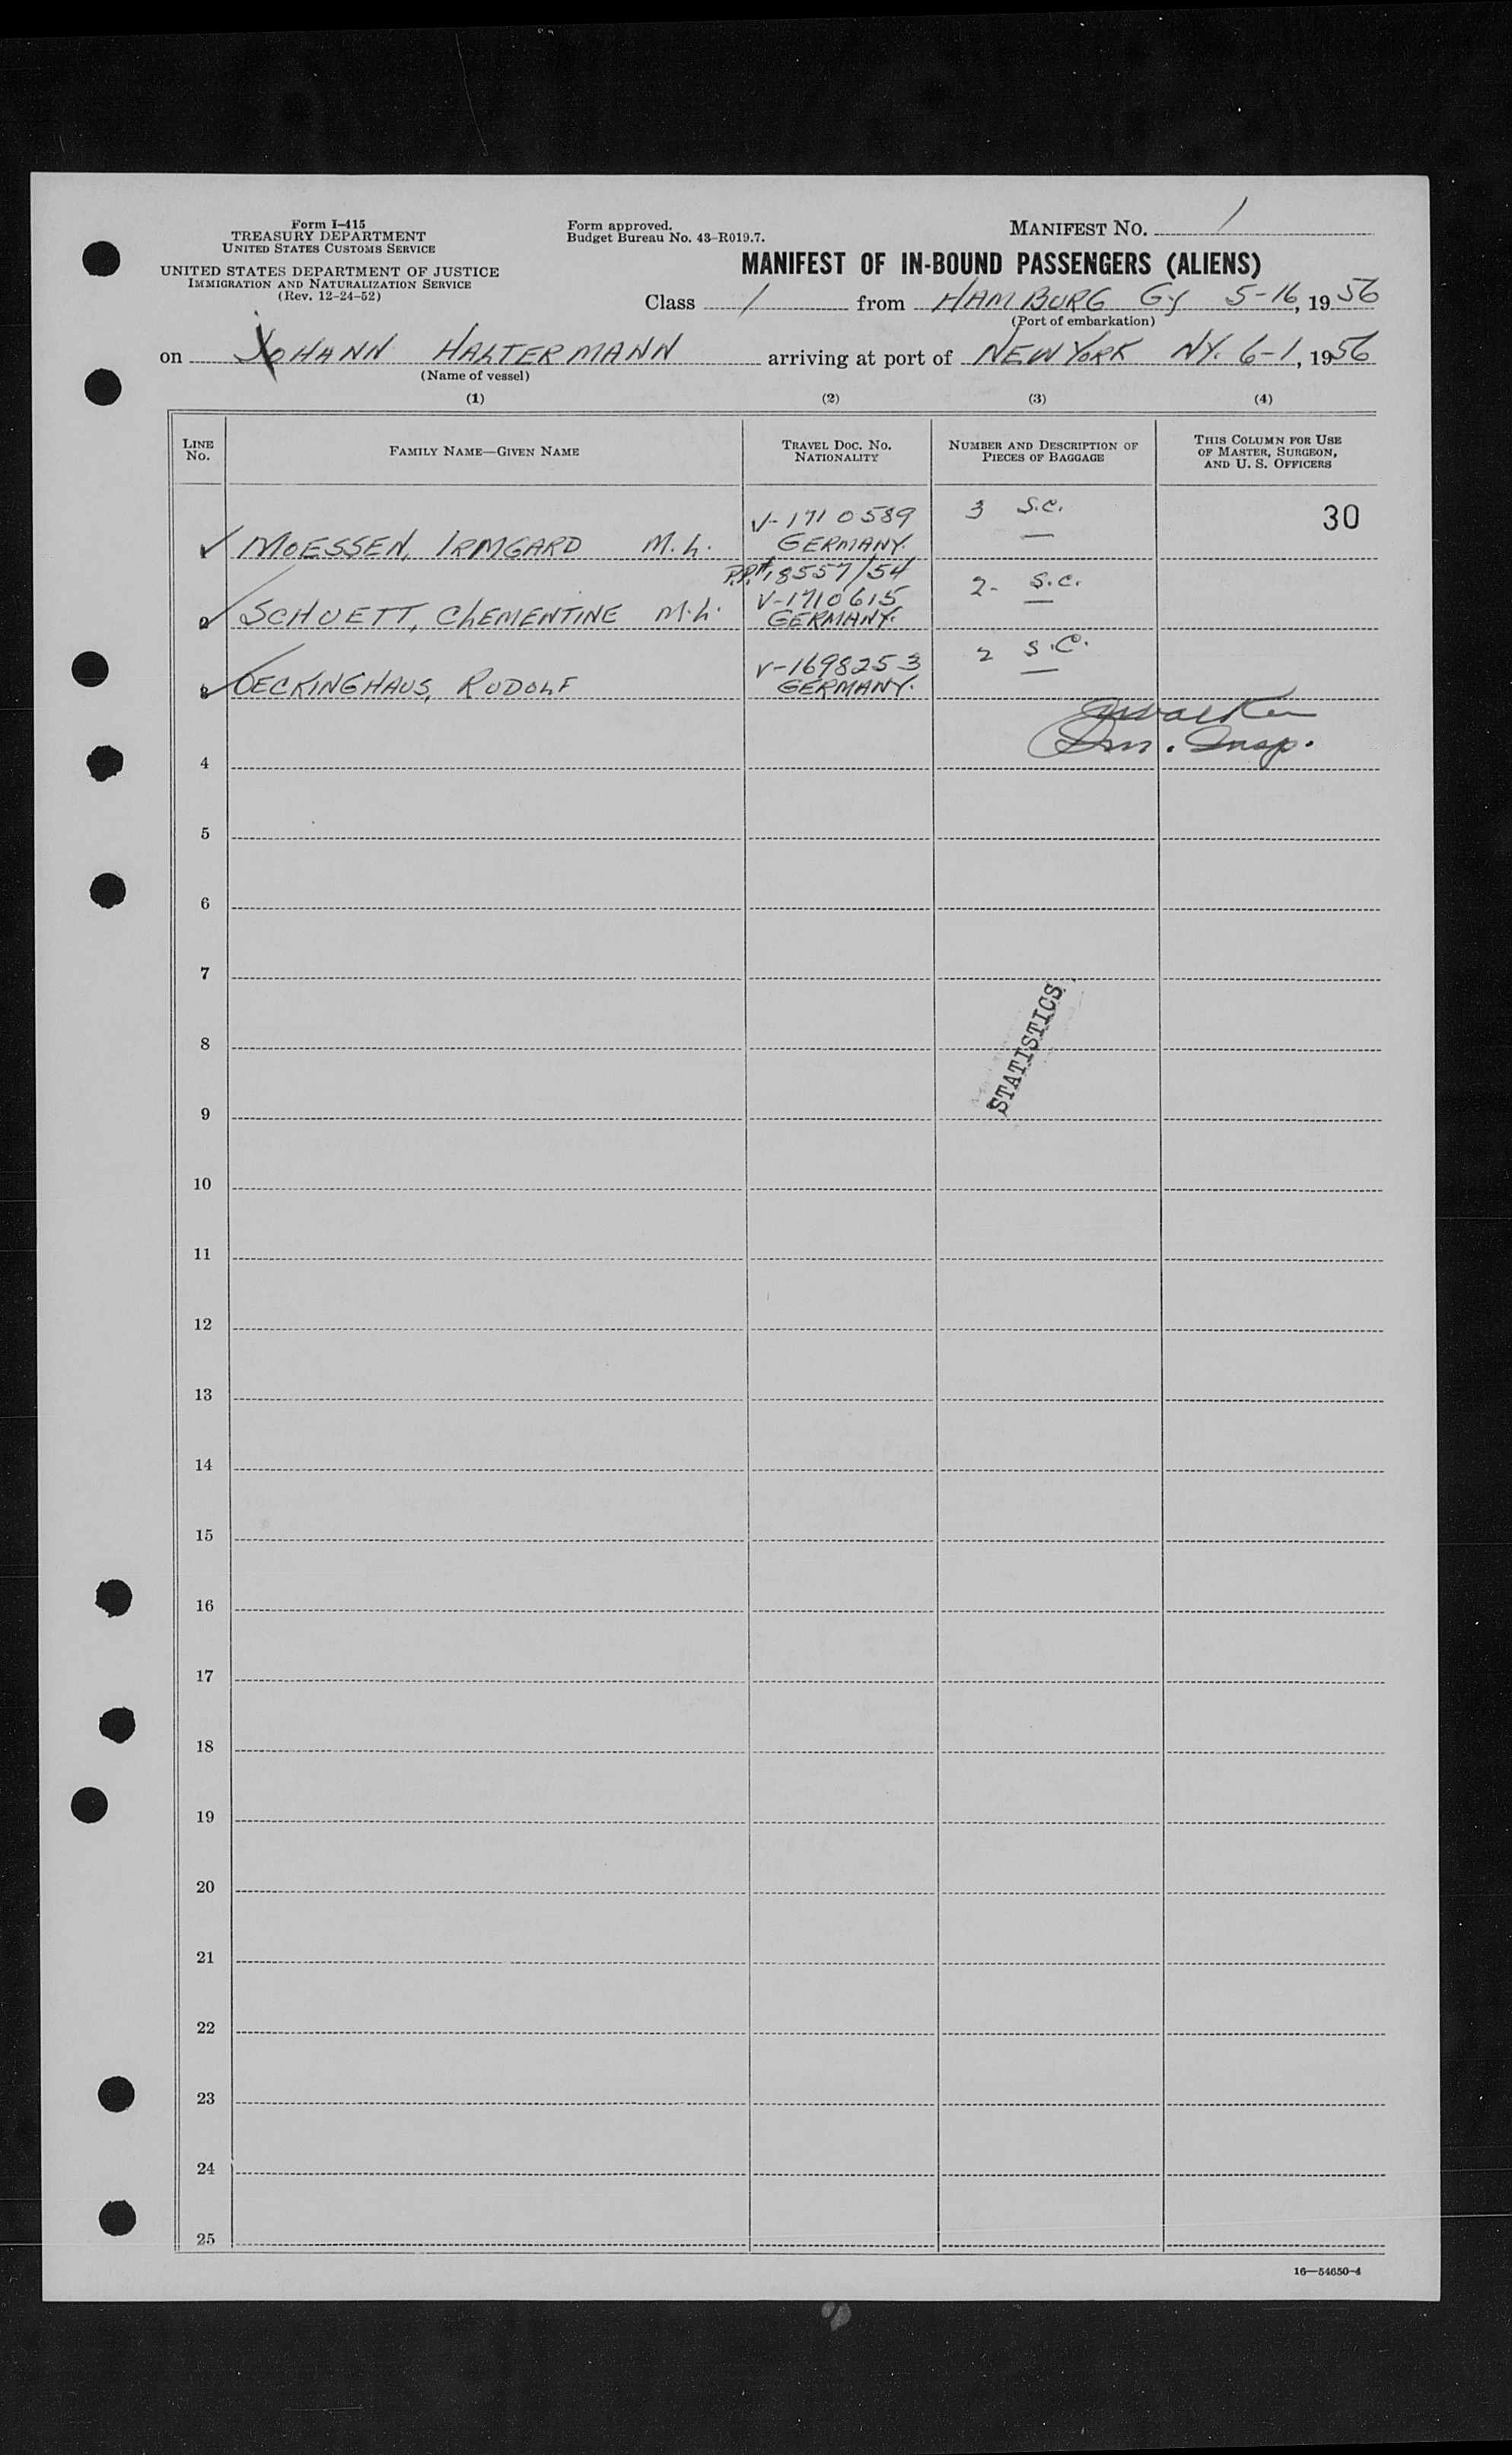 Form I-415
TREASURY DEPARTMENT
UNITED STATES CUSTOMS SERVICE
UNITED STATES DEPARTMENT OF JUSTICE
IMMIGRATION AND NATURALIZATION SERVICE
(Rev. 12-24-52)
Form approved.
Budget Bureau No. 43-R019.7.
MANIFEST NO. 1
MANIFEST OF IN-BOUND PASSENGERS (ALIENS)
Class 1 from HAMBURG Gy 5-16, 1956
(Port of embarkation)
on JOHANN HALTERMANN arriving at port of NEW YORK NY. 6-1, 1956
(Name of vessel)
(1) (2) (3) (4)
LINE No. FAMILY NAME—GIVEN NAME TRAVEL DOC. NO. NATIONALITY NUMBER AND DESCRIPTION OF PIECES OF BAGGAGE THIS COLUMN FOR USE OF MASTER, SURGEON, AND U. S. OFFICERS
V-1710589 3 S.C. 30
1 MOESSEN, IRMGARD M.L. GERMANY.
P.P.# 18557/54
V-1710615 2- S.C.
2 SCHUETT, CLEMENTINE M.L. GERMANY.
V-1698253 2 S.C.
3 OECKINGHAUS, RUDOLF GERMANY.
Walker
Im. Insp.
4
5
6
7
STATISTICS
8
9
10
11
12
13
14
15
16
17
18
19
20
21
22
23
24
25
16—54650-4